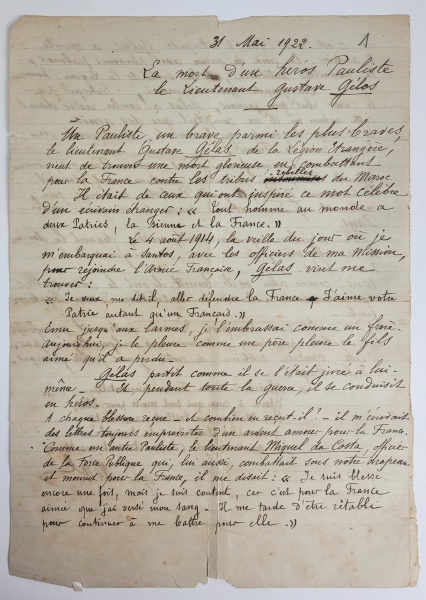 31 Mai 1922.
1
La mort d'un héros Pauliste
le Lieutenant Gustave Gélas
Un Pauliste, un brave parmi les plus braves,
le lieutenant Gustave Gélas, de la Légion Etrangère,
vient de trouver une mort glorieuse en combattant
pour la France contre les tribus rebelles du Maroc
Il était de ceux qui ont inspiré ce mot célèbre
d'un écrivain étranger : « Tout homme au monde a
deux Patries, la Sienne et la France. »
Le 4 août 1914, la veille du jour où je
m'embarquai à Santos, avec les officiers de ma Mission,
pour rejoindre l'Armée Française, Gélas vint me
trouver :
« Je veux, me dit-il, aller défendre la France. J'aime votre
Patrie autant qu'un Français. »
Emu jusqu'aux larmes, je l'embrassai comme un frère.
aujourd'hui, je le pleure comme un père pleure le fils
aimé qu'il a perdu.
Gélas partit comme il se l'était juré à lui-
même - Et pendant toute la guerre, il se conduisit
en héros.
A chaque blessure reçue - et combien en reçut-il ? - il m'écrivait
des lettres toujours empreintes d'un ardent amour pour la France.
Comme un autre Pauliste, le lieutenant Miguel da Costa, officier
de la Force Publique qui, lui aussi, combattait sous notre drapeau
et mourut pour la France, il me disait : « Je suis blessé
encore une fois, mais je suis content, car c'est pour la France
aimée que j'ai versé mon sang - Il me tarde d'être rétabli
pour continuer à me battre pour elle. »